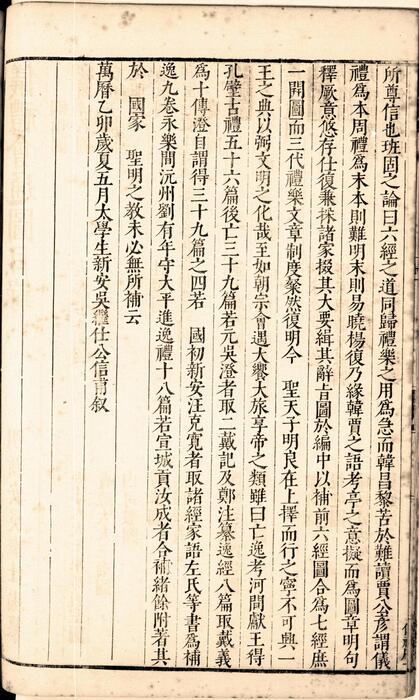 所尊信也班固之論曰六經之道同歸禮樂之用爲急而韓昌黎苦於難讀賈公彦謂儀
禮爲本周禮爲末本則難明末則易曉楊復乃緣韓賈之語考亭之意擬而爲圖章明句
釋厥意悠存仕復兼採諸家掇其大要緝其辭㫖圖於編中以補前六經圖合爲七經庶
一開圖而三代禮樂文章制度粲然復明今 聖天子明良在上擇而行之寧不可興一
王之典以弼文明之化哉至如朝宗會遇大饗大旅享帝之類雖曰亡逸考河間獻王得
孔壁古禮五十六篇後亡三十九篇若元吳澄者取二戴記及鄭注纂逸經八篇取戴義
爲十傳澄自謂得三十九篇之四若 國初新安汪克寬者取諸經家語左氏等書爲補
逸九卷永樂間沅州劉有年守太平進逸禮十八篇若宣城貢汝成者合補緒餘附著其
於 國家 聖明之教未必無所補云
萬曆乙卯歲夏五月太學生新安吳繼仕公信甫叙